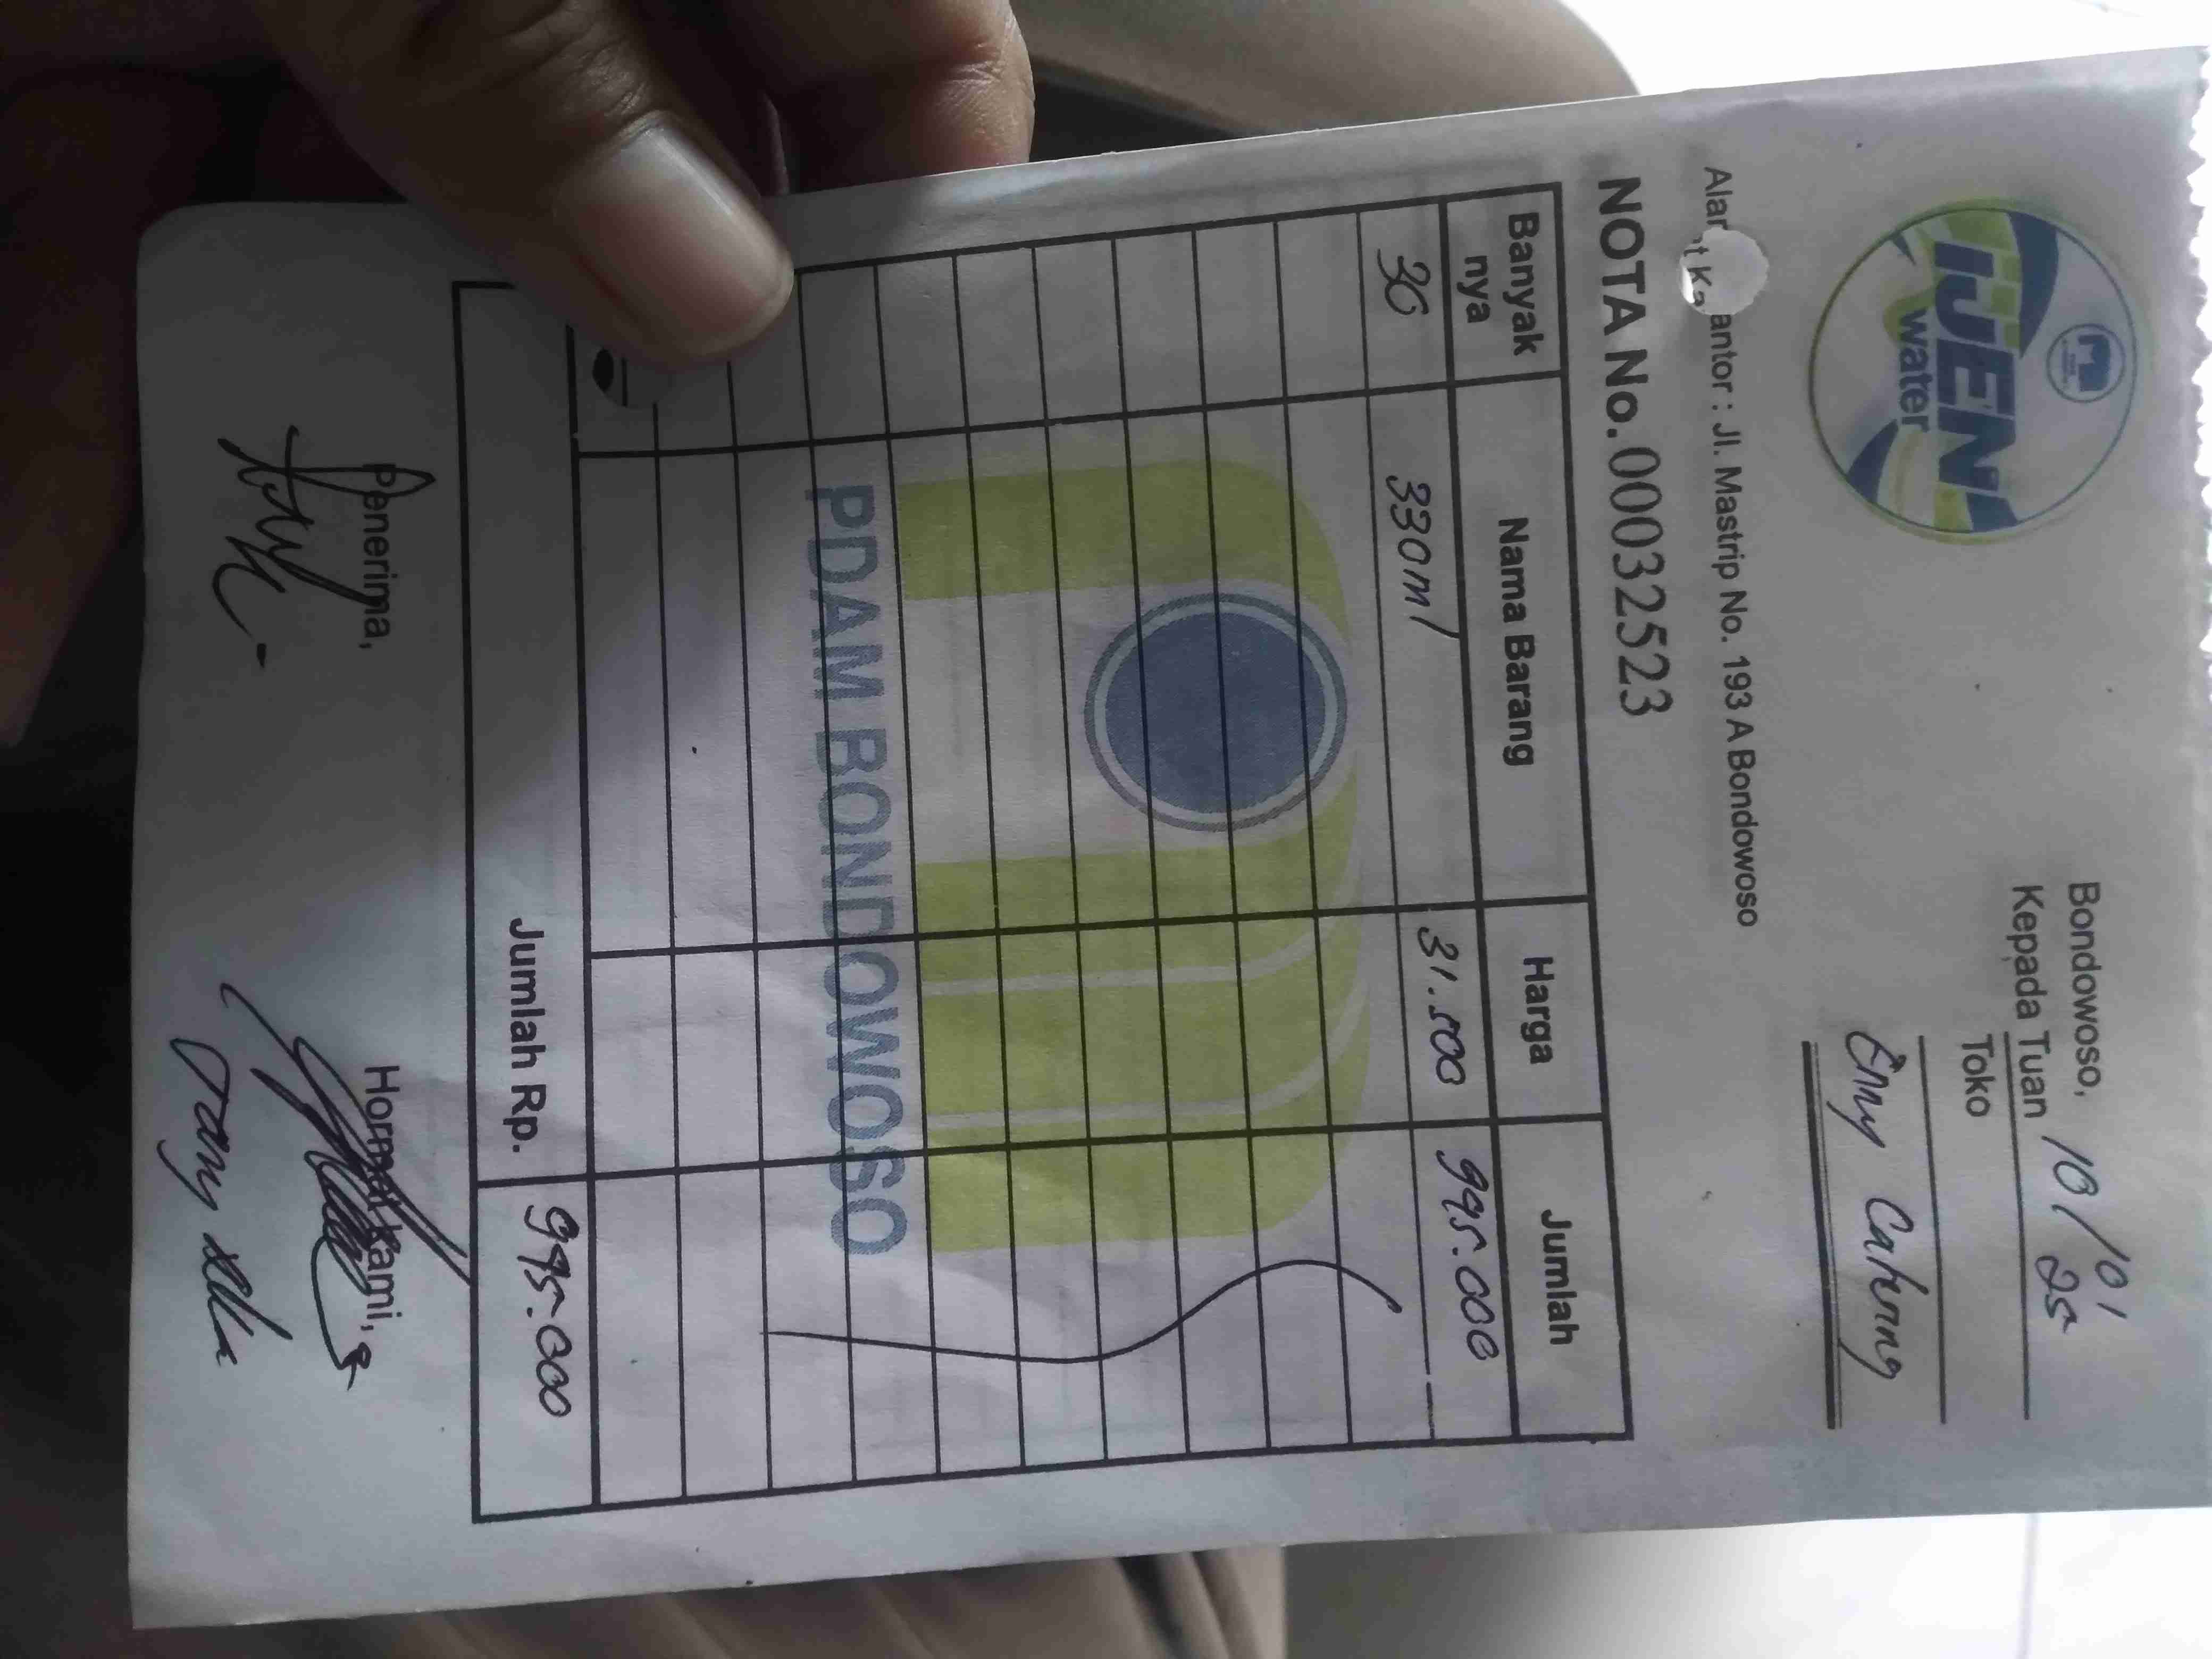 IJEN
water
Bondowoso, 10/01 25
Kepada Tuan
Toko
Enny Catering
Kantor : Jl. Mastrip No. 193 A Bondowoso
NOTA No. 00032523
Banyak nya Nama Barang Harga Jumlah
30 330 ml 31.500 945.000
PDAM BONDOWOSO
Jumlah Rp. 945.000
Penerima, Hormat kami,